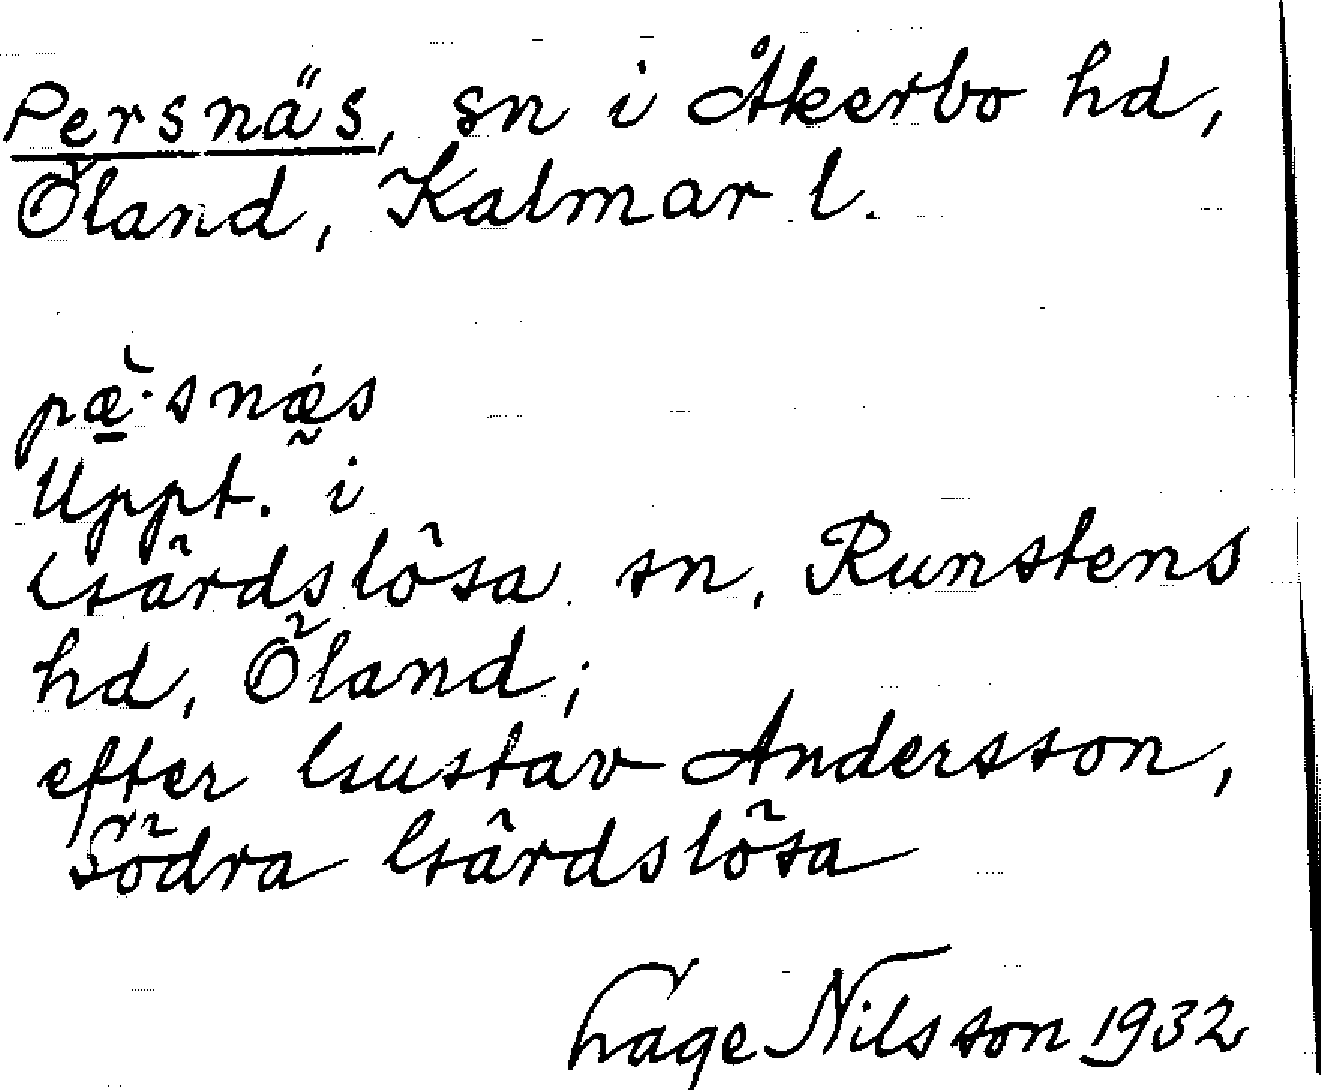 Persnäs, sn i Åkerbo hd,
Öland, Kalmar l.
pæ̠̀·snǽ̰s
Uppt. i
Gärdslösa sn, Runstens
hd, Öland;
efter Gustav Andersson,
Södra Gärdslösa
Lage Nilsson 1932